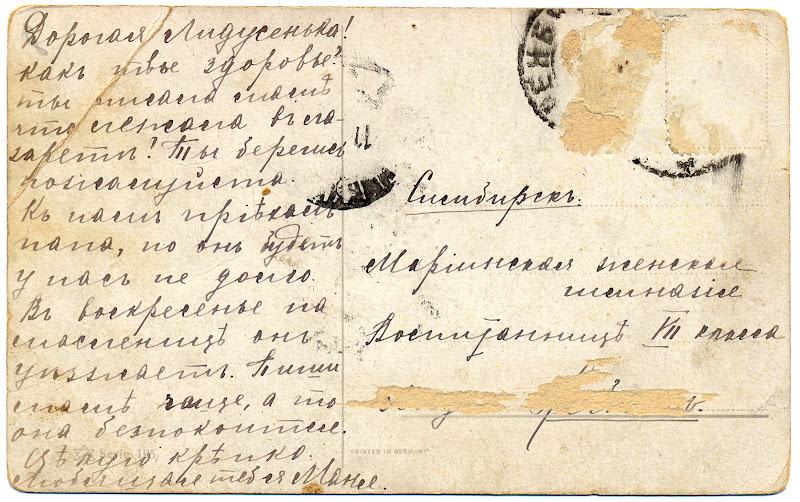 Дорогая Лидусенька!
какъ твое здоровье?
ты писала мамѣ
что лежала въ ла-
заретѣ! Ты берегись
пожалуйста.
Къ намъ пріѣхалъ
папа, но онъ будетъ
у насъ не долго.
Въ воскресенье на
масленицѣ онъ
уѣзжаетъ. Пиши
мамѣ чаще, а то
она безпокоится.
Цѣлую крѣпко.
Любящая тебя Маня.
PRINTED IN GERMANY
Симбирскъ.
Маріинская женская
гимназія
Воспитанницѣ VII класса